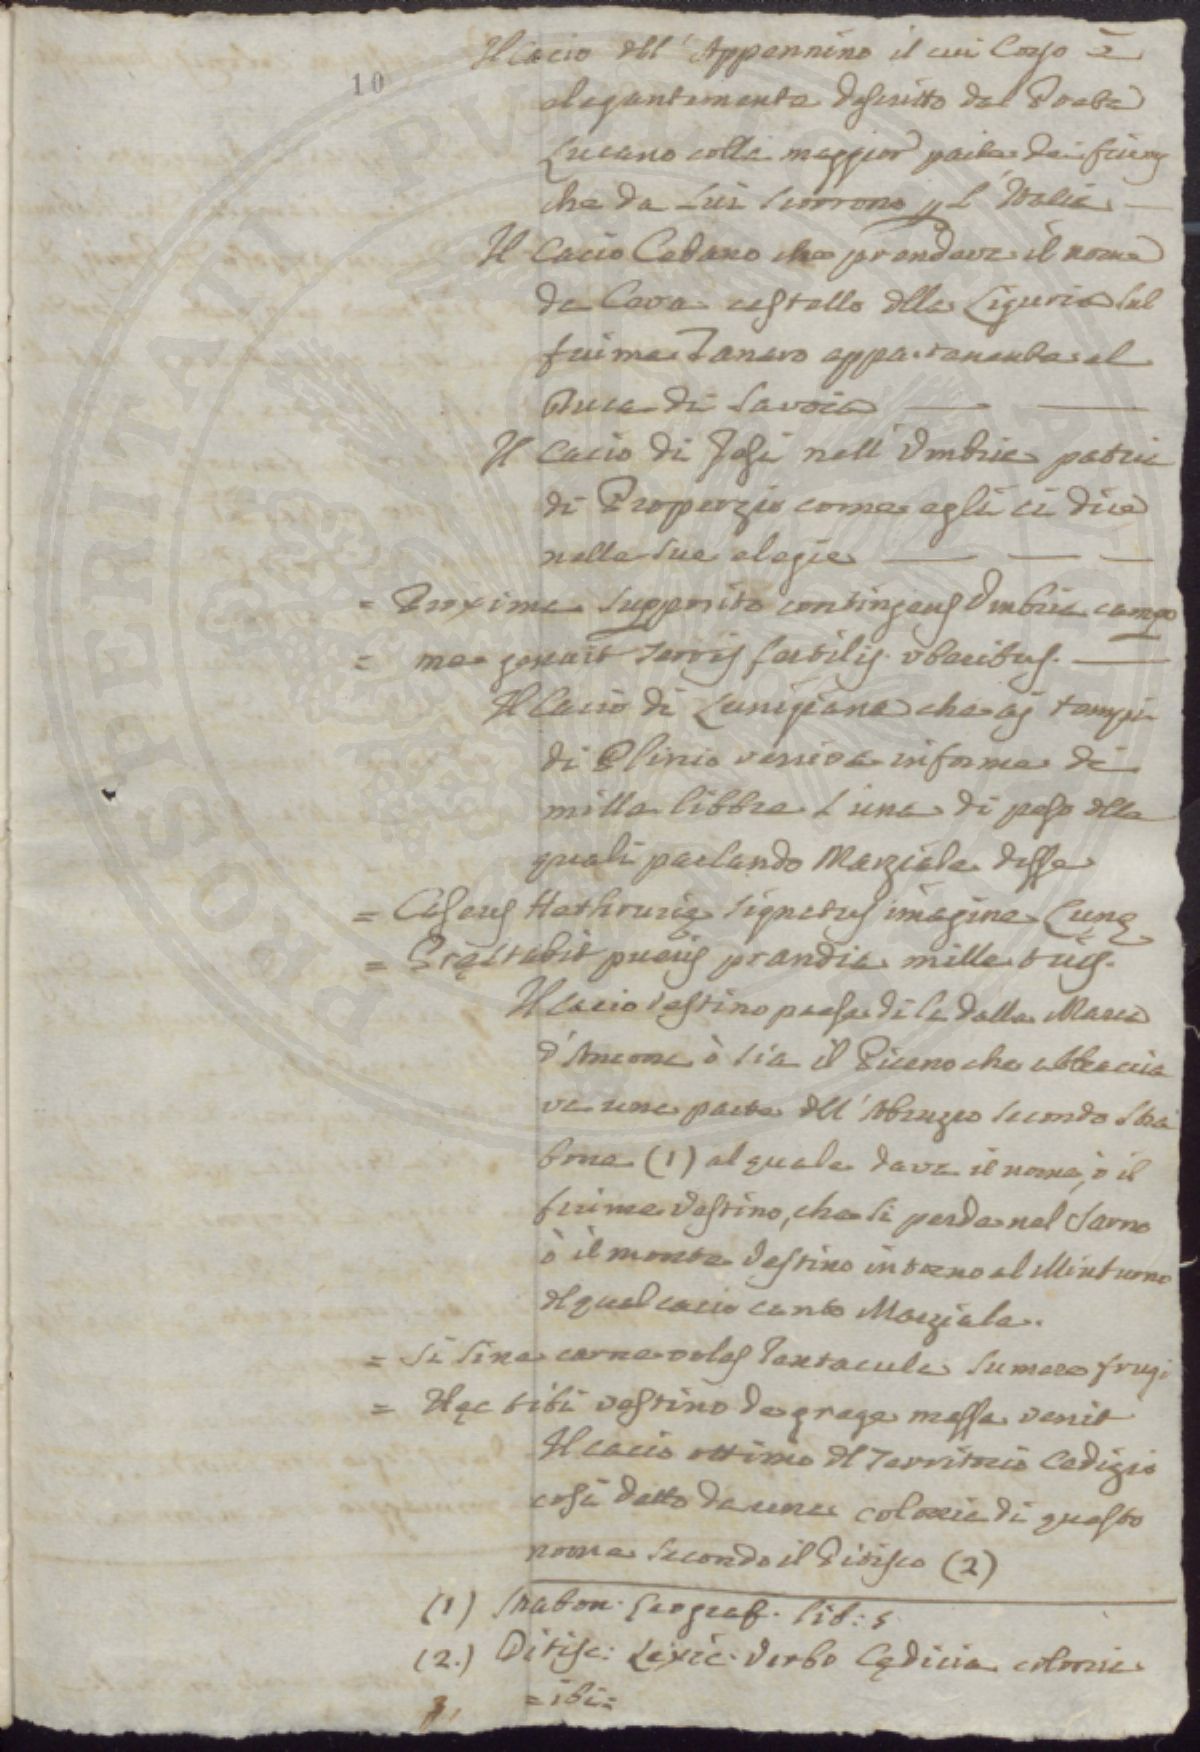 Il Cacio dell' Appennino il cui Corso è
10
elegantemente descritto dal Poeta
Lucano colla maggior parte dei fiumi
che da lui scorrono p l' Italia
Il Cacio Cebano che prendeva il nome
da Ceva castello della Liguria sul
fiume Tanaro appartenente al
Duca di Savoia
Il Cacio di Jesi nell' Umbria patria
di Properzio come egli ci dice
nelle sue elegie
= Proxima supposito contingens Umbria campo
= me genuit terris fertilis uberibus.
Il Cacio di Lunigiana che ai tempi
di Plinio veniva in forme di
mille libbre l'una di peso delle
quali parlando Marziale disse
= Caseus Hethrurię signatus imagine Lunę
= Pręstabit pueris prandia mille tuis.
Il cacio Vestino prese di là dalla Marca
d'Ancona ò sia il Piceno che abbraccia
va una parte dell' Abruzzo secondo Stra
bone (1) al quale dava il nome, ò il
fiume Vestino, che si perde nel Sarno
ò il monte Vestino intorno al Minturno
del qual cacio cantò Marziale.
= Si sine carne voles Jentacula sumere frugi
= Hęc tibi vestino de grege massa venit
Il cacio ottimo del Territorio Cedizio
così detto da una colonia di questo
nome secondo il Pitisco (2)
(1) Strabon. Geograf. lib: 5
(2.) Pitisc: Lexic. verbo Cędicia colonia
= ibi =